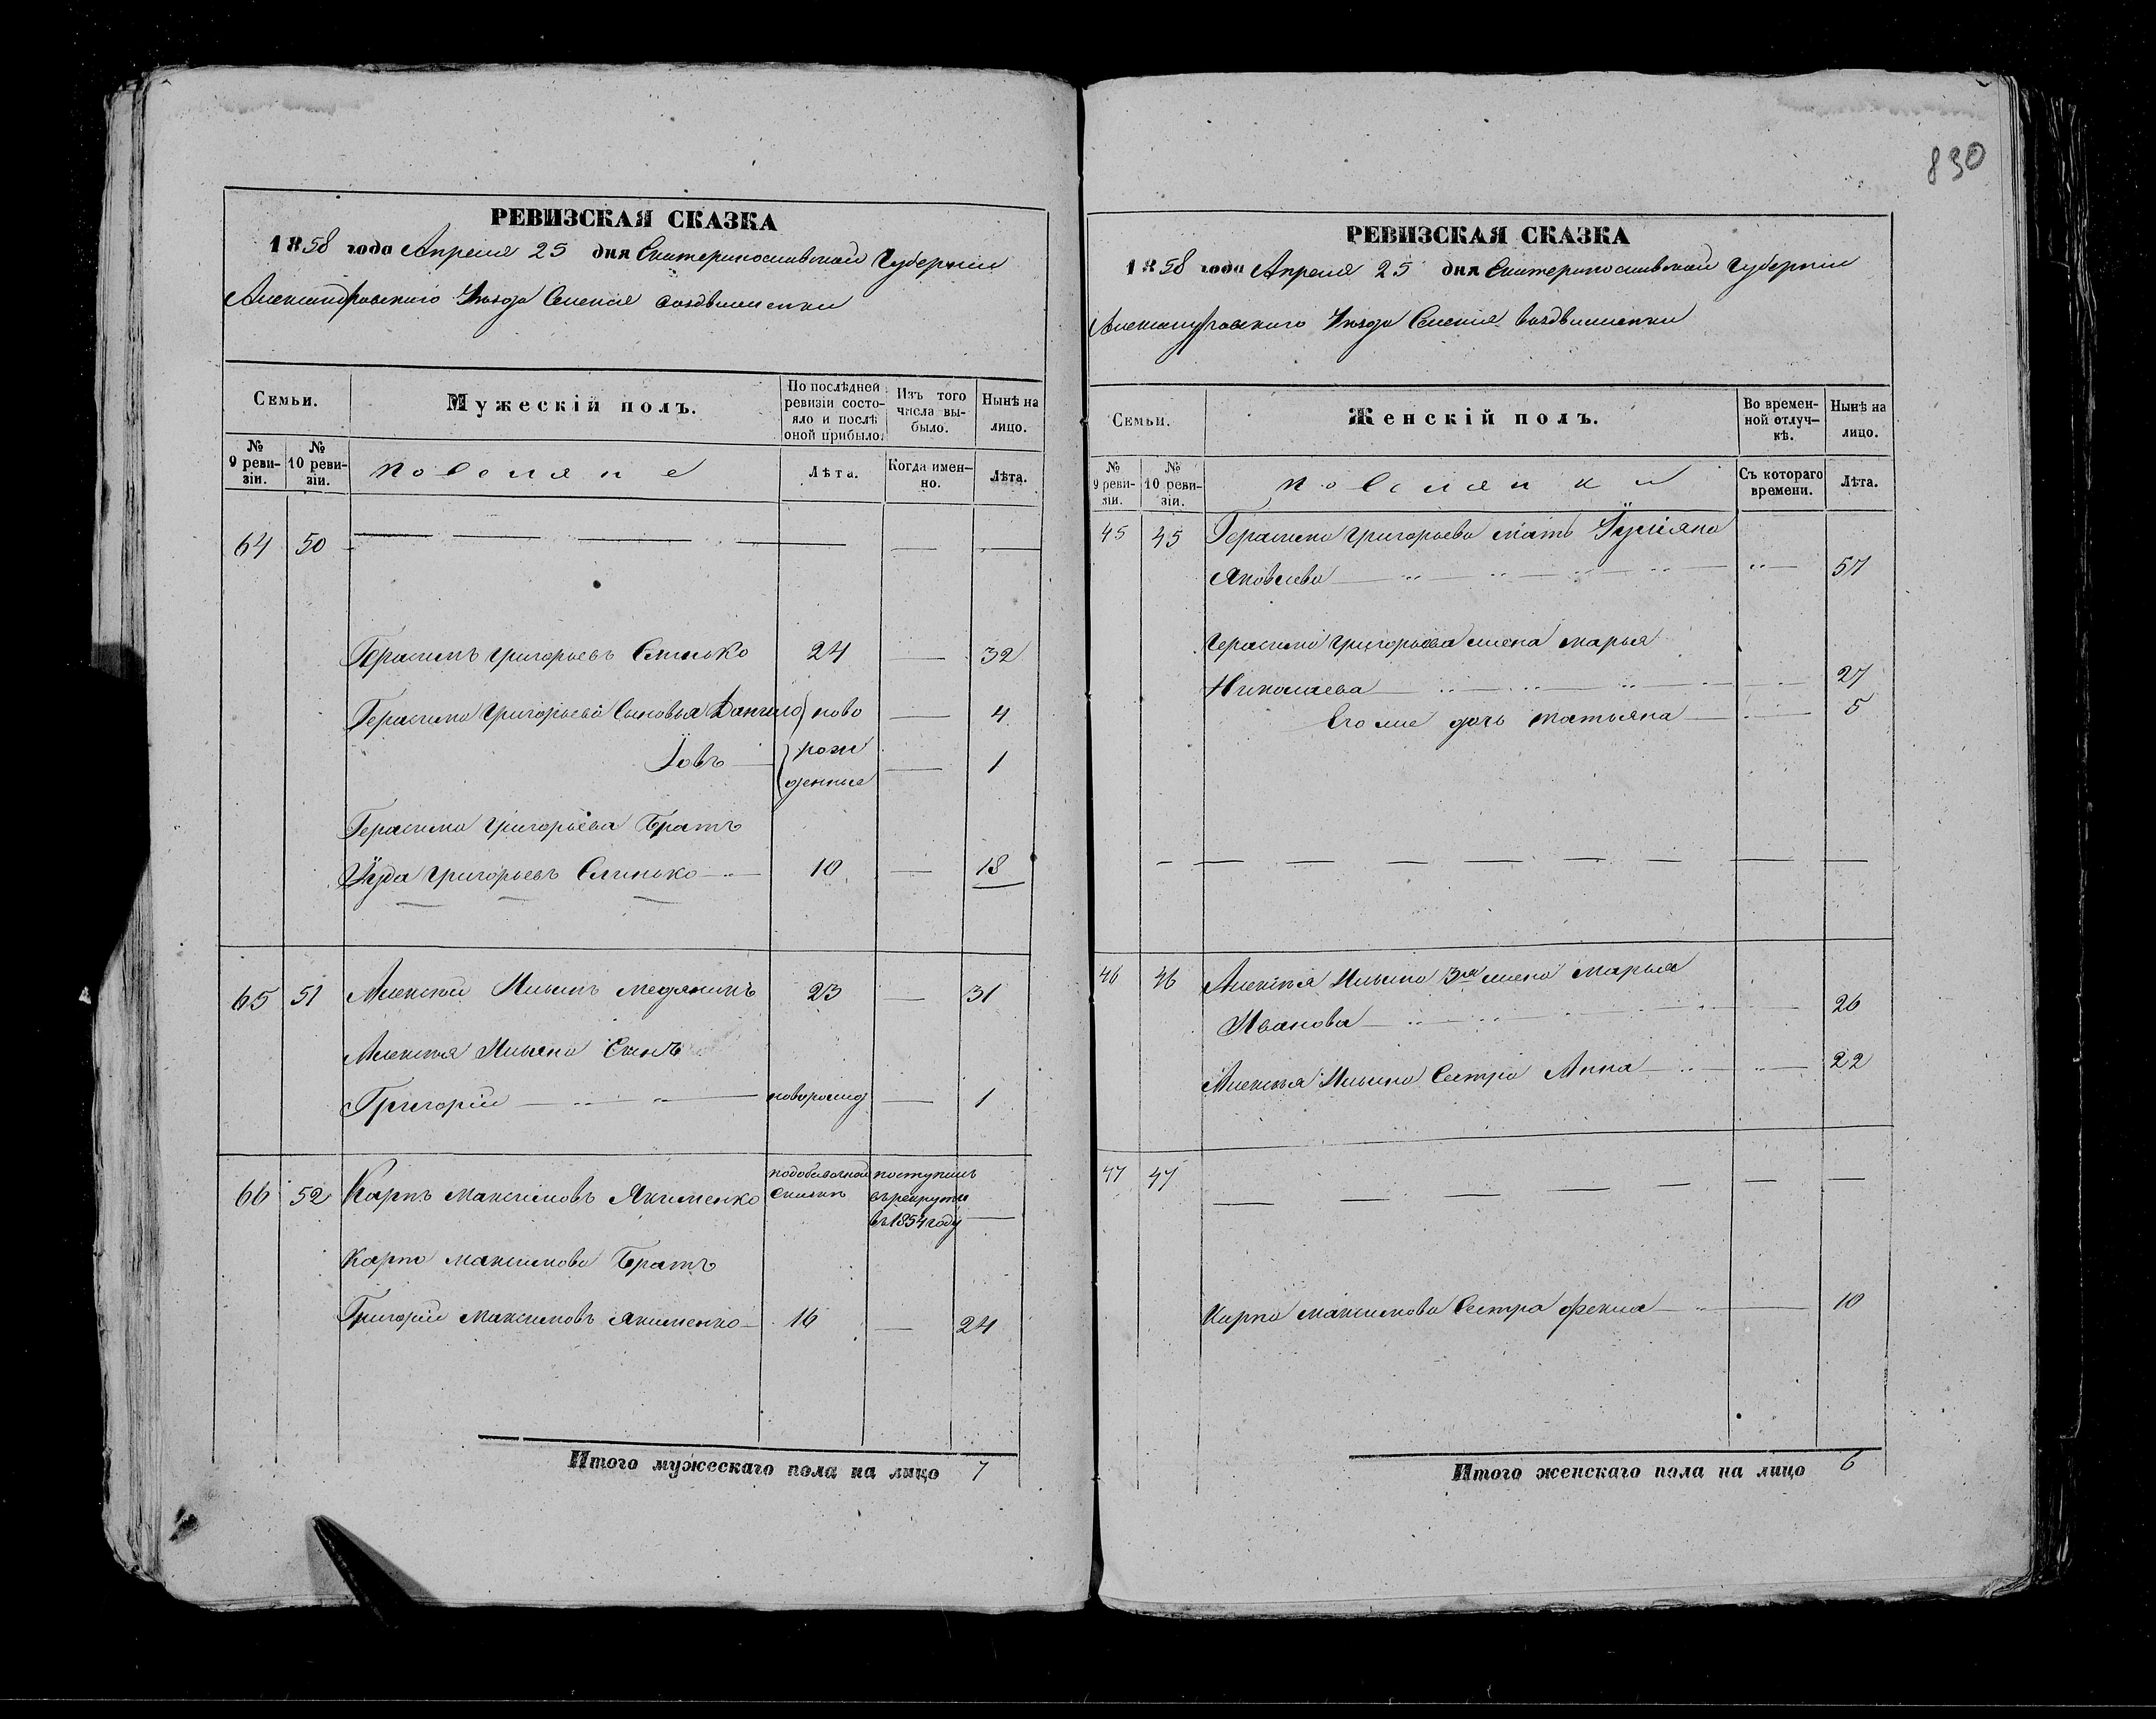 830
РЕВИЗСКАЯ СКАЗКА
1858 года Апреля 25 дня Екатеринославской Губернии
Александровского Уезда Селения Воздвиженки
Семьи.
Мужескій полъ.
По послѣдней ревизіи состо-
яло и послѣ
оной прибыло.
Изъ того
числа вы-
было.
Нынѣ на
лицо.
№
9 реви-
зіи.
№
10 реви-
зіи.
поселяне
Лѣта.
Когда имен-
но.
Лѣта.
64 50
Герасимъ Григорьевъ Слинько 24 32
Герасима Григорьева Сыновья Данило ново 4
Іовъ рож 1
денные
Герасима Григорьева Братъ
Іуда Григорьевъ Слинько 10 18
65 51 Алексей Ильинъ Медяникъ 23 31
Алексея Ильина Сынъ
Григорій новорожд 1
66 52 Карпъ Максимовъ Якименко поступилъ
въ рекруты
въ 1854 году
Карпа Максимова Братъ
Григорій Максимовъ Якименко 16 24
Итого мужескаго пола на лицо 7
РЕВИЗСКАЯ СКАЗКА
1858 года Апреля 25 дня Екатеринославской Губернии
Александровского Уезда Селения Воздвиженки
Семьи.
Женскій полъ.
Во времен-
ной отлуч-
кѣ.
Нынѣ на
лицо.
№
9 реви-
зіи.
№
10 реви-
зіи.
поселянки
Съ котораго
времени.
Лѣта.
45 45 Герасима Григорьева мать
Яковлева 57
Герасима Григорьева жена Марья
Николаева 27
Его же дочь Татьяна 5
46 46 Алексея Ильина 3я жена Марья
Иванова 26
Алексея Ильина Сестра Анна 22
47 47
Карпа Максимова Сестра Фекла 10
Итого женскаго пола на лицо 6